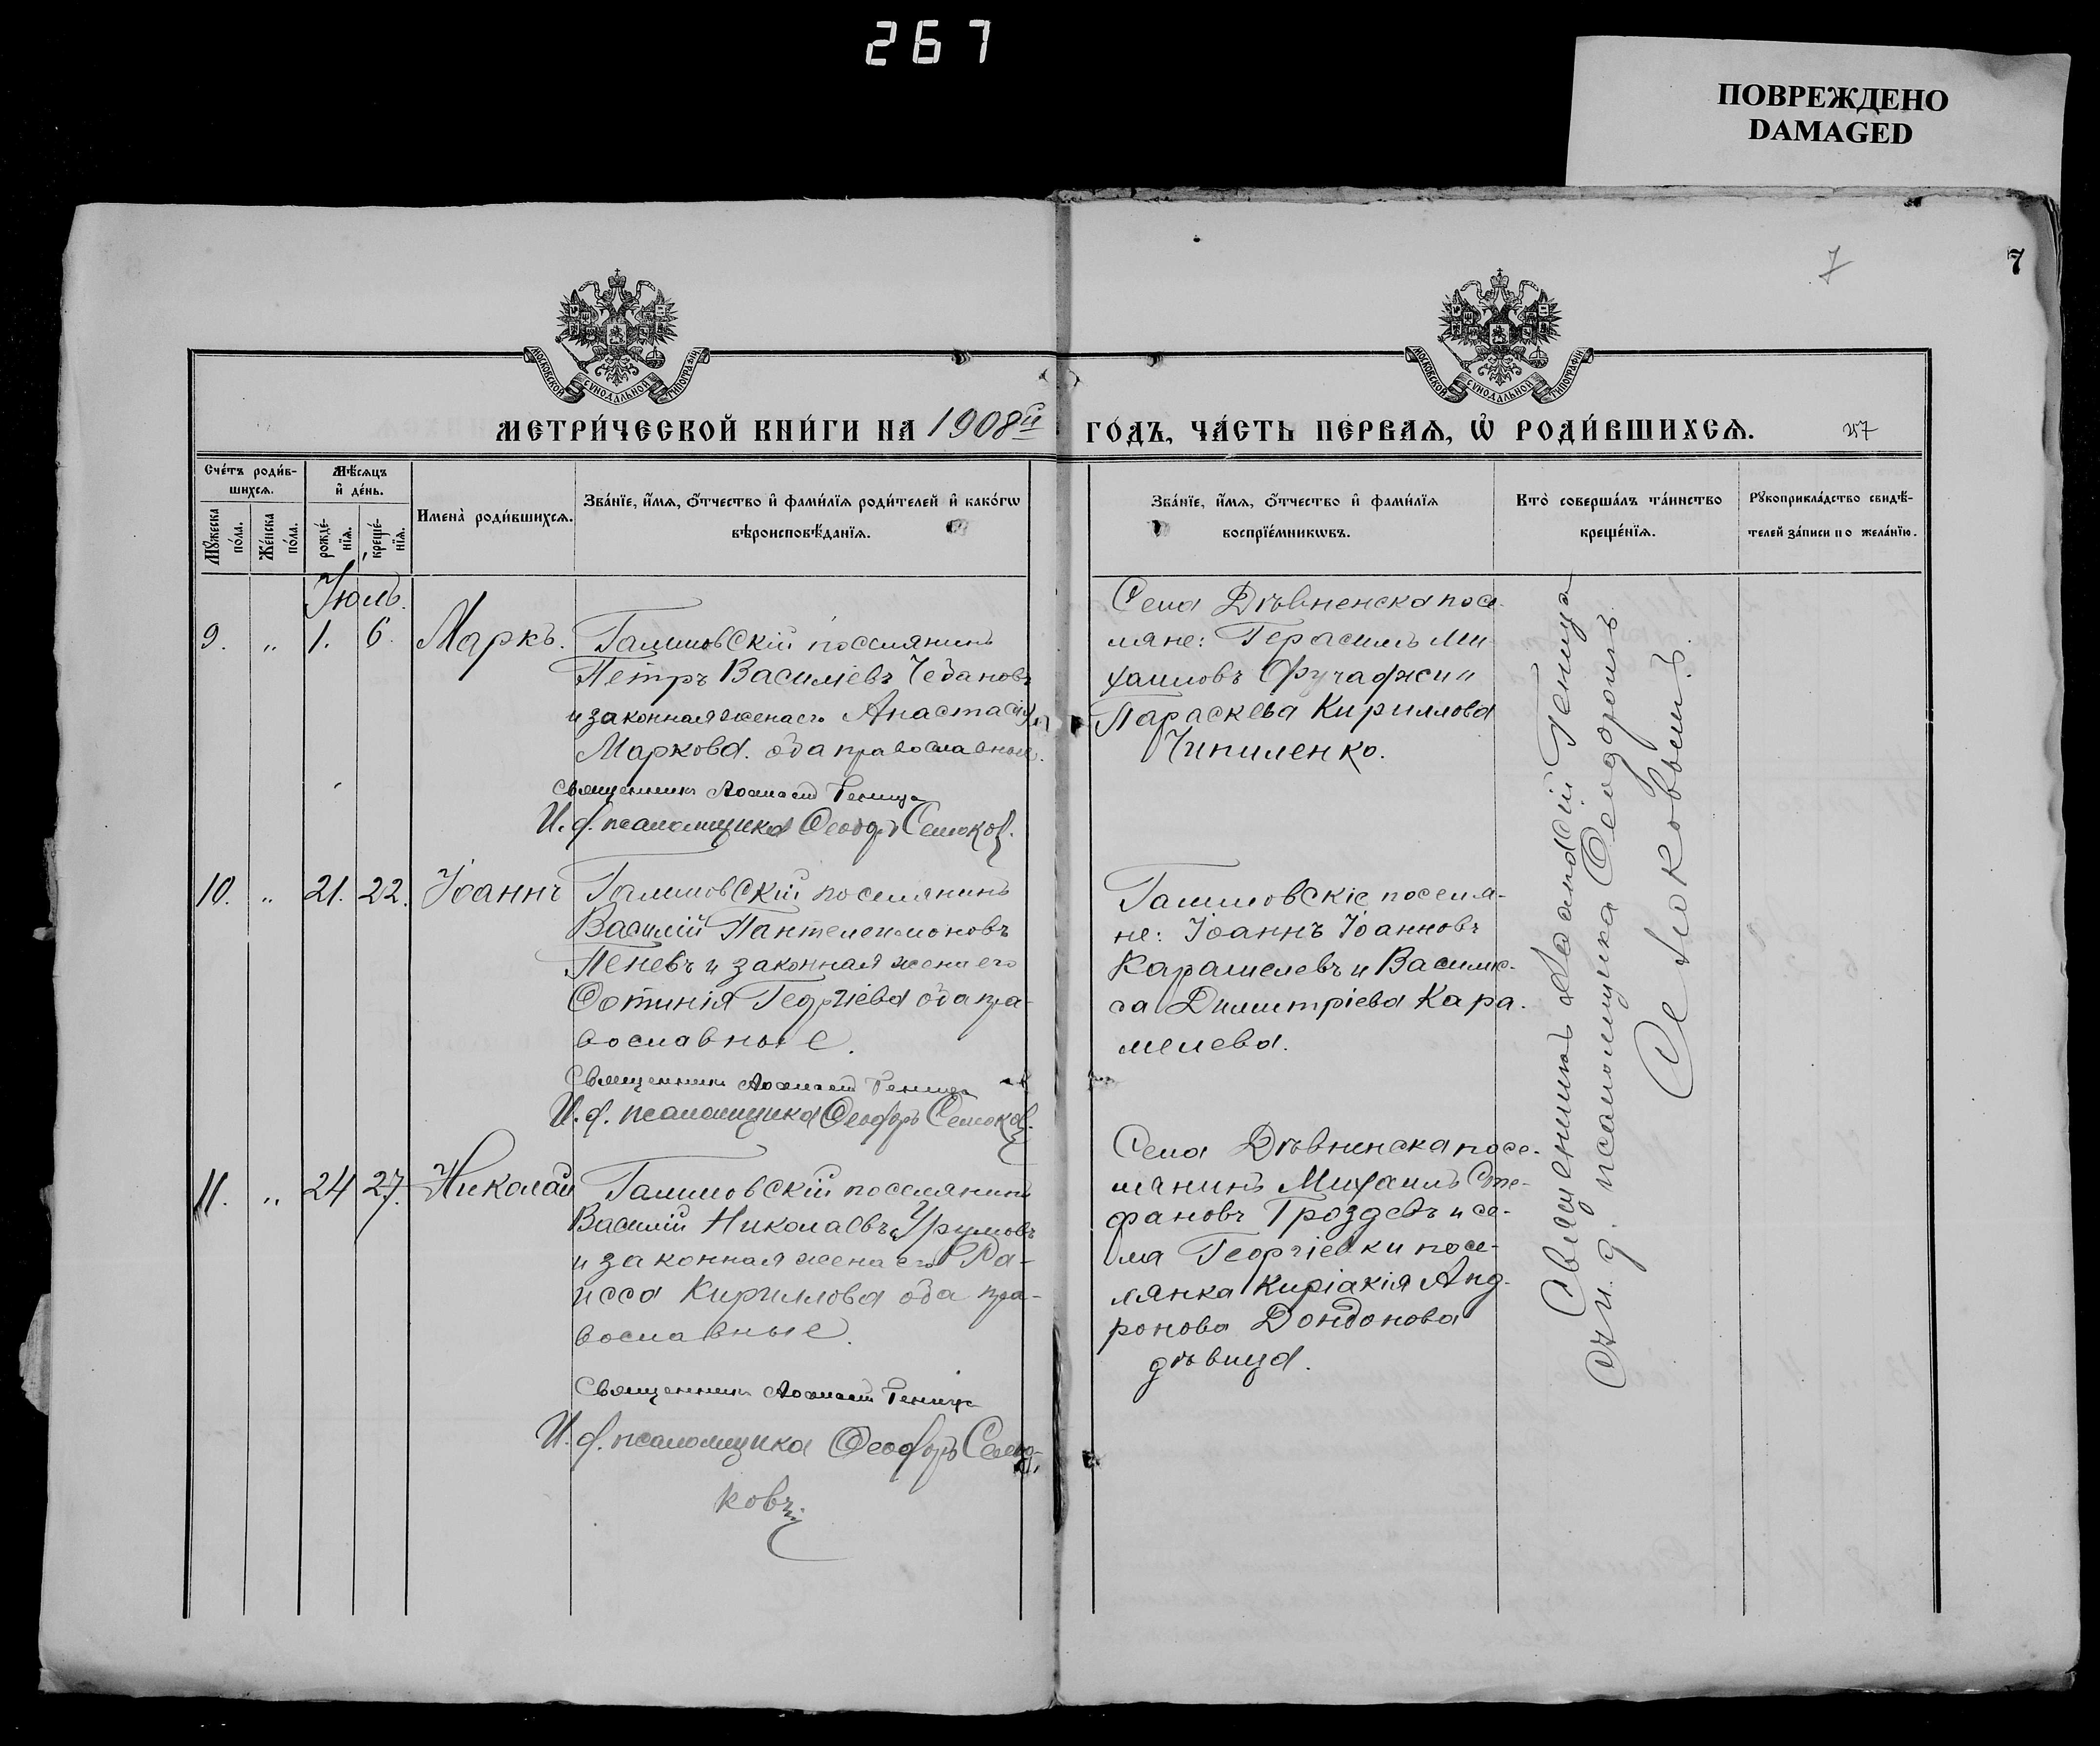 267
ПОВРЕЖДЕНО
DAMAGED
7
7
МОСКОВСКОЙ СУНОДАЛЬНОЙ ТИПОГРАФІИ
МОСКОВСКОЙ СУНОДАЛЬНОЙ ТИПОГРАФІИ
МЕТРИ́ЧЕСКОЙ КНИ́ГИ НА 1908й ГО́ДЪ, ЧА́СТЬ ПЕ́РВАЯ, Ѡ РОДИ́ВШИХСЯ.
Сче́тъ роди́в-
шихся.
Мѣ́сяцъ
и҆ де́нь.
Мꙋ́жеска
по́ла.
Же́нска
по́ла.
рожде́-
нїя.
креще́-
нїя.
И҆мена̀ роди́вшихся.
Зва́нїе, и҆́мя, ѻ҆́тчество и҆ фами́лїя роди́телей и҆ како́гѡ
вѣроисповѣ́данїя.
Зва́нїе, и҆́мя, ѻ҆́тчество и҆ фами́лїя
воспрїе́мникѡвъ.
Кто̀ соверша́лъ та́инство
креще́нїя.
Рꙋкоприкла́дство свидѣ́-
телей за́писи по жела́нїю.
Іюль.
9. „ 1. 6. Маркъ.
Галицовскій поселянинъ
Петръ Василіевъ Чебановъ
и законная жена его Анастасія
Маркова. оба православные.
Священникъ Аѳанасій Геница
И. д. псаломщика Ѳеодоръ Селоков.
Села Дѣвненска посе-
ляне: Герасимъ Ми-
хаиловъ и
Параскева Кириллова
Чипиленко.
10. „ 21. 22. Іоаннъ
Галицовскій поселянинъ
Василій Пантелеимоновъ
Пеневъ и законная жена его
Фотинія Георгіева оба пра-
вославные.
Священникъ Аѳанасій Геница
И. д. псаломщика Ѳеодоръ Селоков.
Галицовскіе поселя-
не: Іоаннъ Іоанновъ
Карамелевъ и Васили-
са Димитріева Кара-
мелева.
11. „ 24 27. Николай
Галицовскій поселянинъ
Василій Николаевъ Урумовъ
и законная жена его Ра-
исса Кириллова оба пра-
вославные.
Священникъ Аѳанасій Геница
И. д. псаломщика Ѳеодоръ Село-
ковъ
Села Дѣвненска посе-
лянинъ Михаилъ Сте-
фановъ Гроздевъ и се-
ла Георгіевки посе-
лянка Киріакія Анд-
ронова Дондонова
дѣвица.
Священникъ Аѳанасій Геница
съ и. д. псаломщика Ѳеодоромъ
Селоковымъ.